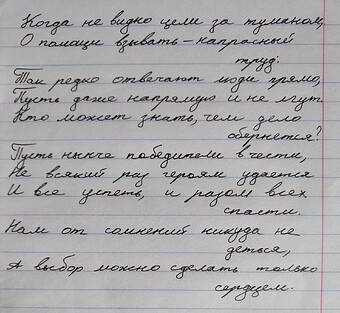 Когда не видно цели за туманом,
О помощи взывать – напрасный
труд:
Так редко отвечают люди прямо,
Пусть даже напрямую и не лгут.
Кто может знать, чем дело
обернется?
Пусть нынче победители в чести,
Не всякий раз героям удается
И все успеть, и разом всех
спасти.
Нам от сомнений никуда не
деться,
А выбор можно сделать только
сердцем.